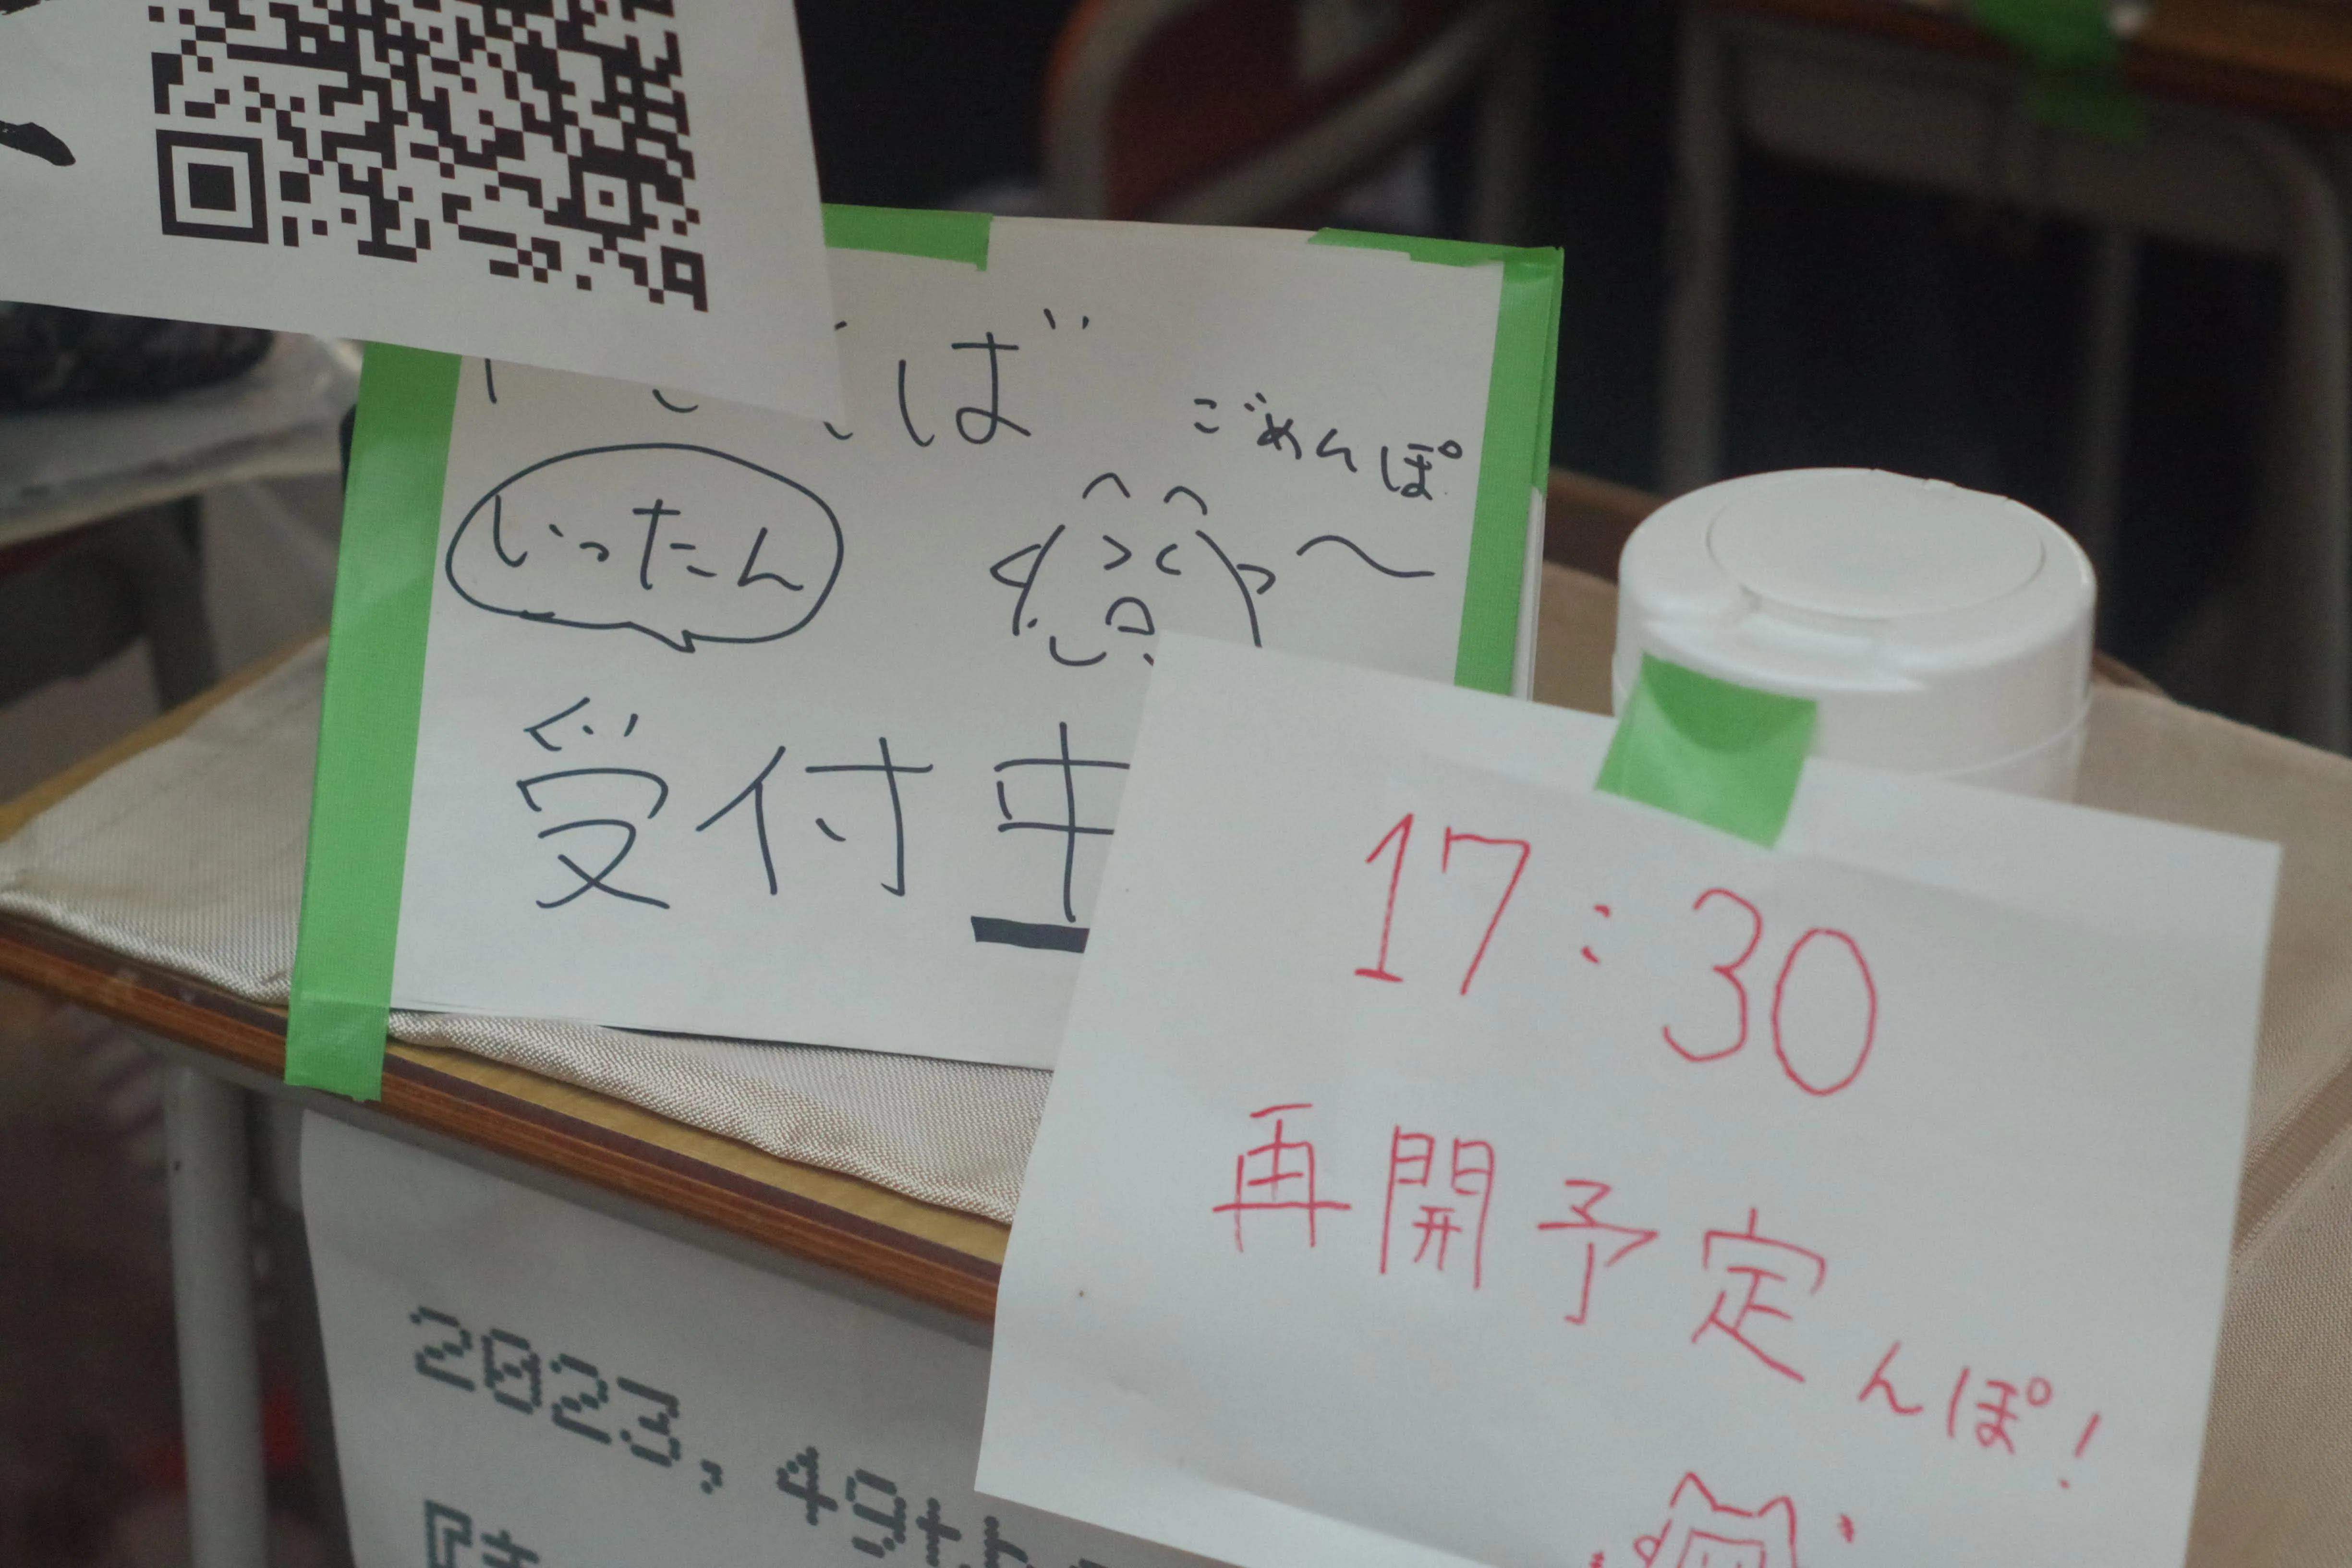 ば
ごめんぽ
いったん
受付中
17:30
再開予定んぽ!
2023.